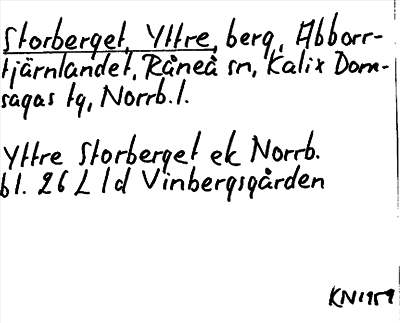 Storberget, Yttre, berg, Abborr-
tjärnlandet, Råneå sn, Kalix Dom-
sagas tg, Norrb. l.
Yttre Storberget ek Norrb.
bl. 26 L 1d Vinbergsgården
KN1959